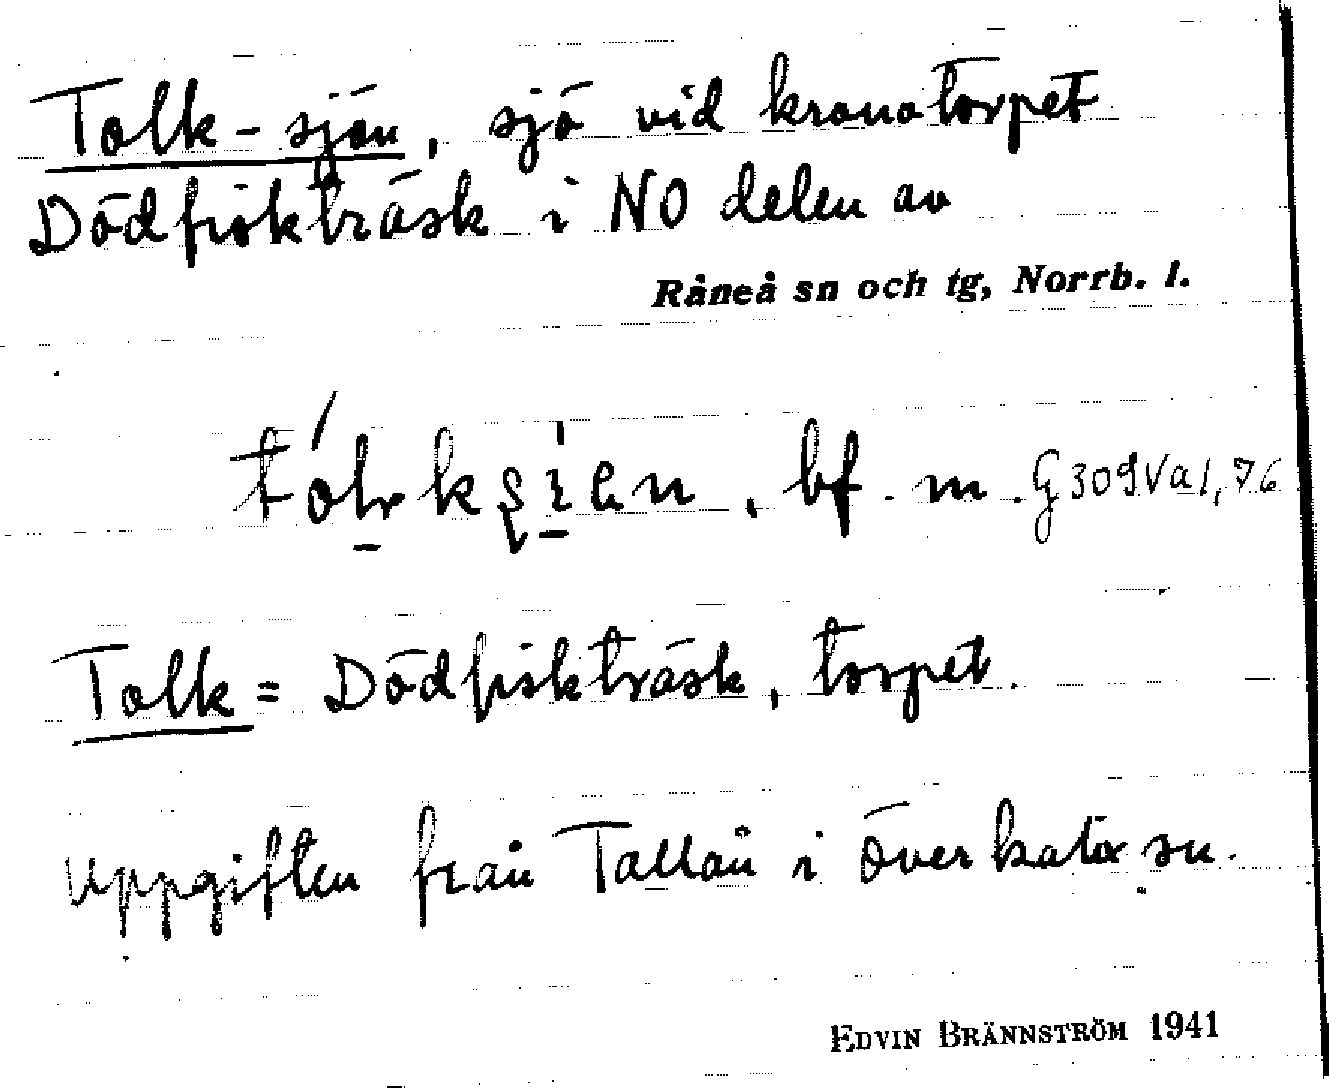 Tolk-sjön, sjö vid kronotorpet
Dödfiskträsk i NO delen av
Råneå sn och tg, Norrb. l.
bf. m. G309Va1, 76
Tolk = Dödfiskträsk, torpet.
Uppgiften från Tallån i överkalix sn.
EDVIN BRÄNNSTRÖM 1941